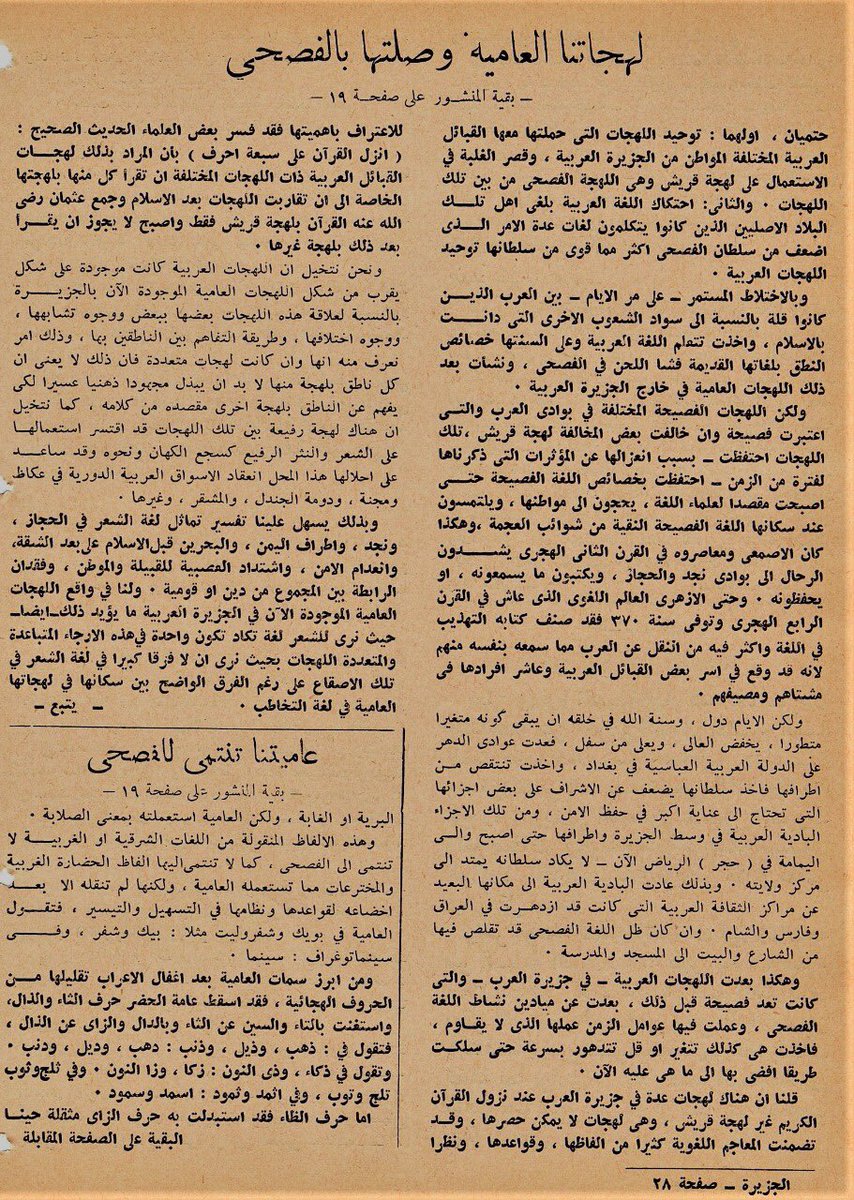 لهجاتنا العامية وصلتها بالفصحي
ـ بقية المنشور على صفحة ١٩ ـ
حتميان ، اولهما : توحيد اللهجات التى حملتها معها القبائل
العربية المختلفة المواطن من الجزيرة العربية ، وقصر الغلبة في
الاستعمال على لهجة قريش وهى اللهجة الفصحى من بين تلك
اللهجات ٠ والثانى: احتكاك اللغة العربية بلغى اهل تلك
البلاد الاصليين الذين كانوا يتكلمون لغات عدة الامر الذى
اضعف من سلطان الفصحى اكثر مما قوى من سلطانها توحيد
اللهجات العربية ٠
وبالاختلاط المستمر ـ على مر الايام ـ بين العرب الذين
كانوا قلة بالنسبة الى سواد الشعوب الاخرى التى دانت
بالاسلام ، واخذت تتعلم اللغة العربية وعلى السنتها خصائص
النطق بلغاتها القديمة فشا اللحن في الفصحى ، ونشأت بعد
ذلك اللهجات العامية في خارج الجزيرة العربية ٠
ولكن اللهجات الفصيحة المختلفة في بوادى العرب والتى
اعتبرت فصيحة وان خالفت بعض المخالفة لهجة قريش ،تلك
اللهجات احتفظت ـ بسبب انعزالها عن المؤثرات التى ذكرناها
لفترة من الزمن ـ احتفظت بخصائص اللغة الفصيحة حتى
اصبحت مقصدا لعلماء اللغة ، يحجون الى مواطنها ، ويلتمسون
عند سكانها اللغة الفصيحة النقية من شوائب العجمة ،وهكذا
كان الاصمعى ومعاصروه في القرن الثانى الهجرى يشدون
الرحال الى بوادى نجد والحجاز ، ويكتبون ما يسمعونه ، او
يحفظونه ٠ وحتى الازهرى العالم اللغوى الذى عاش في القرن
الرابع الهجرى وتوفى سنة ٣٧٠ فقد صنف كتابه التهذيب
في اللغة واكثر فيه من النقل عن العرب مما سمعه بنفسه منهم
لانه قد وقع في اسر بعض القبائل العربية وعاشر افرادها فى
مشتاهم ومصيفهم ٠
ولكن الايام دول ، وسنة الله في خلقه ان يبقى كونه متغيرا
متطورا ، يخفض العالى ، ويعلى من سفل ، فعدت عوادى الدهر
على الدولة العربية العباسية في بغداد ، واخذت تنتقص من
اطرافها فاخذ سلطانها يضعف عن الاشراف على بعض اجزائها
التى تحتاج الى عناية اكبر في حفظ الامن ، ومن تلك الاجزاء
البادية العربية في وسط الجزيرة واطرافها حتى اصبح والى
اليمامة في ( حجر ) الرياض الآن ـ لا يكاد سلطانه يمتد الى
مركز ولايته ٠ وبذلك عادت البادية العربية الى مكانها البعيد
عن مراكز الثقافة العربية التى كانت قد ازدهرت في العراق
وفارس والشام ٠ وان كان ظل اللغة الفصحى قد تقلص فيها
من الشارع والبيت الى المسجد والمدرسة ٠
وهكذا بعدت اللهجات العربية ـ في جزيرة العرب ـ والتى
كانت تعد فصيحة قبل ذلك ، بعدت عن ميادين نشاط اللغة
الفصحى ، وعملت فيها عوامل الزمن عملها الذى لا يقاوم ،
فاخذت هى كذلك تتغير او قل تتدهور بسرعة حتى سلكت
طريقا افضى بها الى ما هى عليه الآن ٠
قلنا ان هناك لهجات عدة في جزيرة العرب عند نزول القرآن
الكريم غير لهجة قريش ، وهى لهجات لا يمكن حصرها ، وقد
تضمنت المعاجم اللغوية كثيرا من الفاظها ، وقواعدها ، ونظرا
للاعتراف باهميتها فقد فسر بعض العلماء الحديث الصحيح :
( انزل القرآن على سبعة احرف ) بأن المراد بذلك لهجات
القبائل العربية ذات اللهجات المختلفة ان تقرأ كل منها بلهجتها
الخاصة الى ان تقاربت اللهجات بعد الاسلام وجمع عثمان رضى
الله عنه القرآن بلهجة قريش فقط واصبح لا يجوز ان يقرأ
بعد ذلك بلهجة غيرها ٠
ونحن نتخيل ان اللهجات العربية كانت موجودة على شكل
يقرب من شكل اللهجات العامية الموجودة الآن بالجزيرة
بالنسبة لعلاقة هذه اللهجات بعضها ببعض ووجوه تشابهها ،
ووجوه اختلافها ، وطريقة التفاهم بين الناطقين بها ، وذلك امر
نعرف منه انها وان كانت لهجات متعددة فان ذلك لا يعنى ان
كل ناطق بلهجة منها لا بد ان يبذل مجهودا ذهنيا عسيرا لكى
يفهم عن الناطق بلهجة اخرى مقصده من كلامه ، كما نتخيل
ان هناك لهجة رفيعة بين تلك اللهجات قد اقتسر استعمالها
على الشعر والنثر الرفيع كسجع الكهان ونحوه وقد ساعد
على احلالها هذا المحل انعقاد الاسواق العربية الدورية في عكاظ
ومجنة ، ودومة الجندل ، والمشقر ، وغيرها ٠
وبذلك يسهل علينا تفسير تماثل لغة الشعر في الحجاز ،
ونجد ، واطراف اليمن ، والبحرين قبل الاسلام على بعد الشقة،
وانعدام الامن ، واشتداد العصبية للقبيلة والموطن ، وفقدان
الرابطة بين المجموع من دين او قومية ٠ ولنا في واقع اللهجات
العامية الموجودة الآن في الجزيرة العربية ما يؤيد ذلك ـ ايضا ـ
حيث نرى للشعر لغة تكاد تكون واحدة في هذه الارجاء المتباعدة
والمتعددة اللهجات بحيث نرى ان لا فرقا كبيرا في لغة الشعر في
تلك الاصقاع على رغم الفرق الواضح بين سكانها في لهجاتها
العامية في لغة التخاطب ٠ ـ يتبع ـ
عاميتنا تنتمى للفصحى
ـ بقية المنشور على صفحة ١٩ ـ
البرية او الغابة ، ولكن العامية استعملته بمعنى الصلابة ٠
وهذه الالفاظ المنقولة من اللغات الشرقية او الغربية لا
تنتمى الى الفصحى ، كما لا تنتمى اليها الفاظ الحضارة الغربية
والمخترعات مما تستعمله العامية ، ولكنها لم تنقله الا بعد
اخضاعه لقواعدها ونظامها في التسهيل والتيسير ، فتقول
العامية في بويك وشفروليت مثلا : بيك وشفر ، وفى
سينماتوغراف : سينما ٠
ومن ابرز سمات العامية بعد اغفال الاعراب تقليلها من
الحروف الهجائية ، فقد اسقط عامة الحضر حرف الثاء والذال،
واستغنت بالتاء والسين عن الثاء وبالدال والزاى عن الذال ،
فتقول في : ذهب ، وذيل ، وذنب : دهب ، وديل ، ودنب ٠
وتقول في ذكاء ، وذى النون : زكا ، وزا النون ٠ وفي ثلج وثوب
تلج وتوب ، وفي اثمد وثمود : اسمد وسمود ٠
اما حرف الظاء فقد استبدلت به حرف الزاى مثقلة حينا
البقية على الصفحة المقابلة
الجزيرة ـ صفحة ٢٨